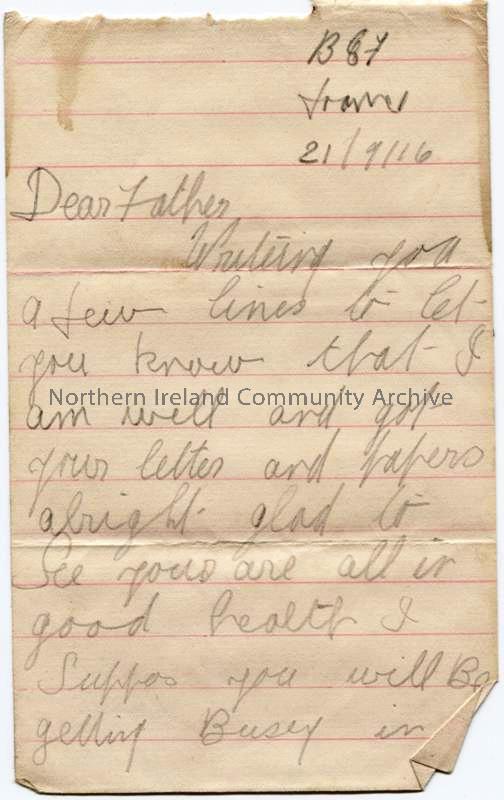 B 87
France
21/9/16
Dear Father
Writing you
a few lines to let
you know that I
am well and got
Northern Ireland Community Archive
your letter and papers
alright glad to
See yous are all in
good health I
Suppos you will Be
getting Busey in